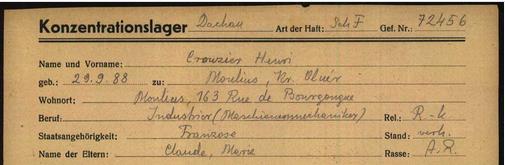 Konzentrationslager Dachau Art der Haft: Sch F Gef. Nr.: 72456
Name und Vorname: Crouzier Henri
geb.: 29.9.88 zu: Moulins, Kr. Oluér
Wohnort: Moulins, 163 Rue de Bourgongue
Beruf: Industrier (Maschienenmechaniker) Rel.: R-k
Staatsangehörigkeit: Franzose Stand: verh.
Name der Eltern: Claude, Marie Rasse: A.R.